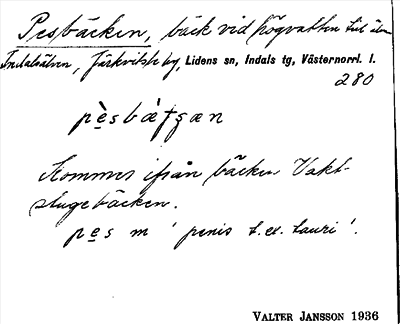 Pesbäcken, bäck vid högvatten till älven
Indalsälven, Järkvitsle by, Lidens sn, Indals tg, Västernorrl. l.
280
pè̱sbàƭʂæn
Kommer ifrån bäcken Vakt-
stugebäcken.
pe̱s m 'penis t.ex. tauri'.
VALTER JANSSON 1936